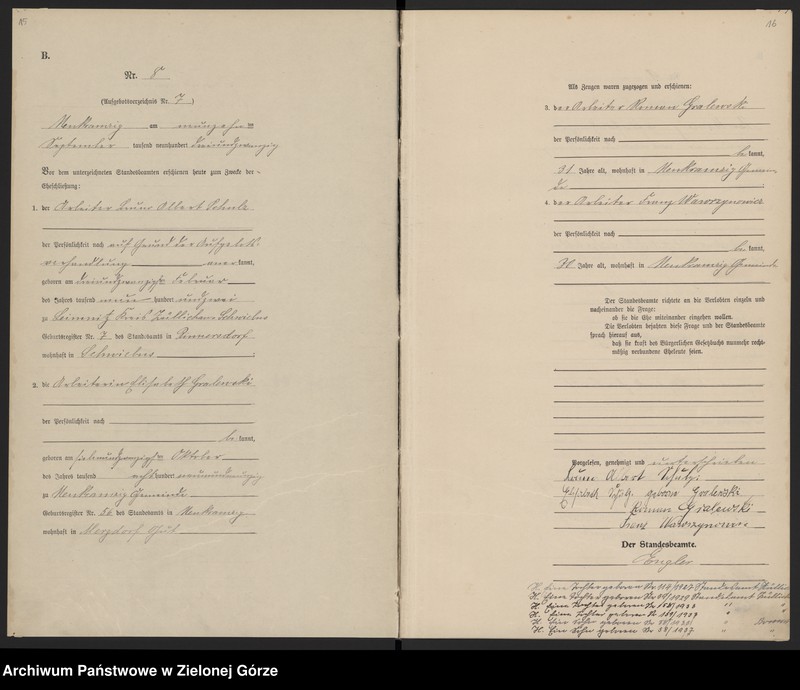 15
B.
Nr. 8
(Aufgebotsverzeichnis Nr. 7)
Neukramzig am neunzehnten
September tausend neunhundert dreiundzwanzig
Vor dem unterzeichneten Standesbeamten erschienen heute zum Zwecke der
Eheschließung:
1. der Arbeiter Bruno Albert Schulz
der Persönlichkeit nach auf Grund der Aufgebots-
verhandlung anerkannt,
geboren am dreiundzwanzigsten Februar
des Jahres tausend neun hundert undzwei
zu Kreis Züllichau Schwiebus
Geburtsregister Nr. 7 des Standesamts in Rennersdorf
wohnhaft in Schwiebus
2. die Arbeiterin Elisabeth Gralewski
der Persönlichkeit nach
be kannt,
geboren am siebenundzwanzigsten Oktober
des Jahres tausend acht hundert neunundneunzig
zu Neukramzig Gemeinde
Geburtsregister Nr. 56 des Standesamts in Neukramzig
wohnhaft in
16
Als Zeugen waren zugezogen und erschienen:
3. der Arbeiter Roman Gralewski
der Persönlichkeit nach
be kannt,
31 Jahre alt, wohnhaft in Neukramzig Gemein-
de
4. der Arbeiter Franz Wawrzynowicz
der Persönlichkeit nach
be kannt,
Jahre alt, wohnhaft in Neukramzig Gemeinde
Der Standesbeamte richtete an die Verlobten einzeln und
nacheinander die Frage:
ob sie die Ehe miteinander eingehen wollen.
Die Verlobten bejahten diese Frage und der Standesbeamte
sprach hierauf aus,
daß sie kraft des Bürgerlichen Gesetzbuchs nunmehr recht-
mäßig verbundene Eheleute seien.
Vorgelesen, genehmigt und unterschrieben
Bruno Albert Schulz
Elisabeth Schulz geborene Gralewski
Roman Gralewski
Franz Wawrzynowicz
Der Standesbeamte.
Engler
H. Eine Tochter geboren Nr 114/1927 Standesamt
H. Eine Tochter geboren Nr /1929 Standesamt
H. Eine Tochter geboren Nr "
H. Eine Tochter geboren Nr "
H. Ein Sohn geboren Nr "
H. Ein Sohn geboren Nr "
Archiwum Państwowe w Zielonej Górze